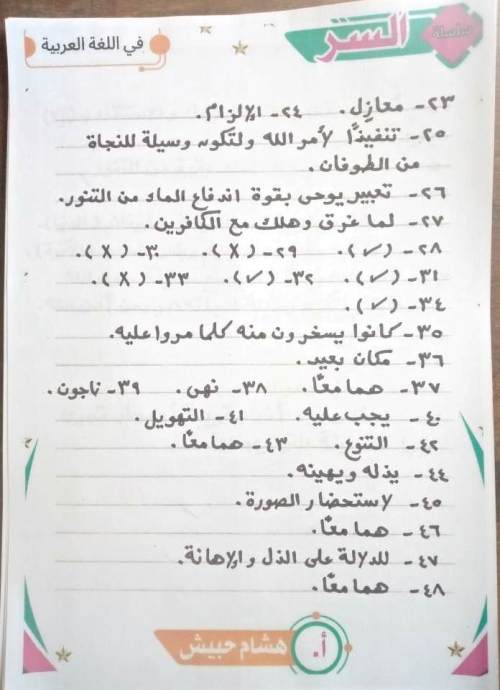 سلسلة
السر
في اللغة العربية
٢٣- معازل. ٢٤- الإلزام.
٢٥- تنفيذًا لأمر الله ولتكون وسيلة للنجاة
من الطوفان.
٢٦- تعبير يوحى بقوة اندفاع الماء من التنور.
٢٧- لما غرق وهلك مع الكافرين.
٢٨- (✓). ٢٩- (X). ٣٠- (X).
٣١- (✓). ٣٢- (✓). ٣٣- (X).
٣٤- (✓).
٣٥- كانوا يسخرون منه كلما مروا عليه.
٣٦- مكان بعيد.
٣٧- هما معًا. ٣٨- نهى. ٣٩- ناجون.
٤٠- يجب عليه. ٤١- التهويل.
٤٢- التنوع. ٤٣- هما معًا.
٤٤- يذله ويهينه.
٤٥- لاستحضار الصورة.
٤٦- هما معًا.
٤٧- للدلالة على الذل والإهانة.
٤٨- هما معًا.
أ. هشام حبيش